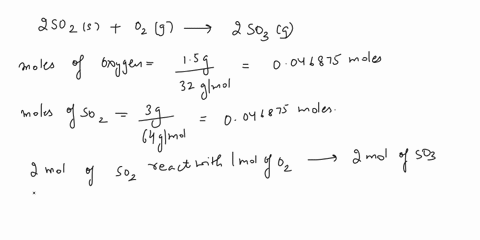 2SO2(s) + O2(g) ⟶ 2SO3(g)
moles of oxygen = 1.5g / 32 g/mol = 0.046875 moles
moles of SO2 = 3g / 64 g/mol = 0.046875 moles.
2 mol of SO2 react with 1 mol of O2 ⟶ 2 mol of SO3